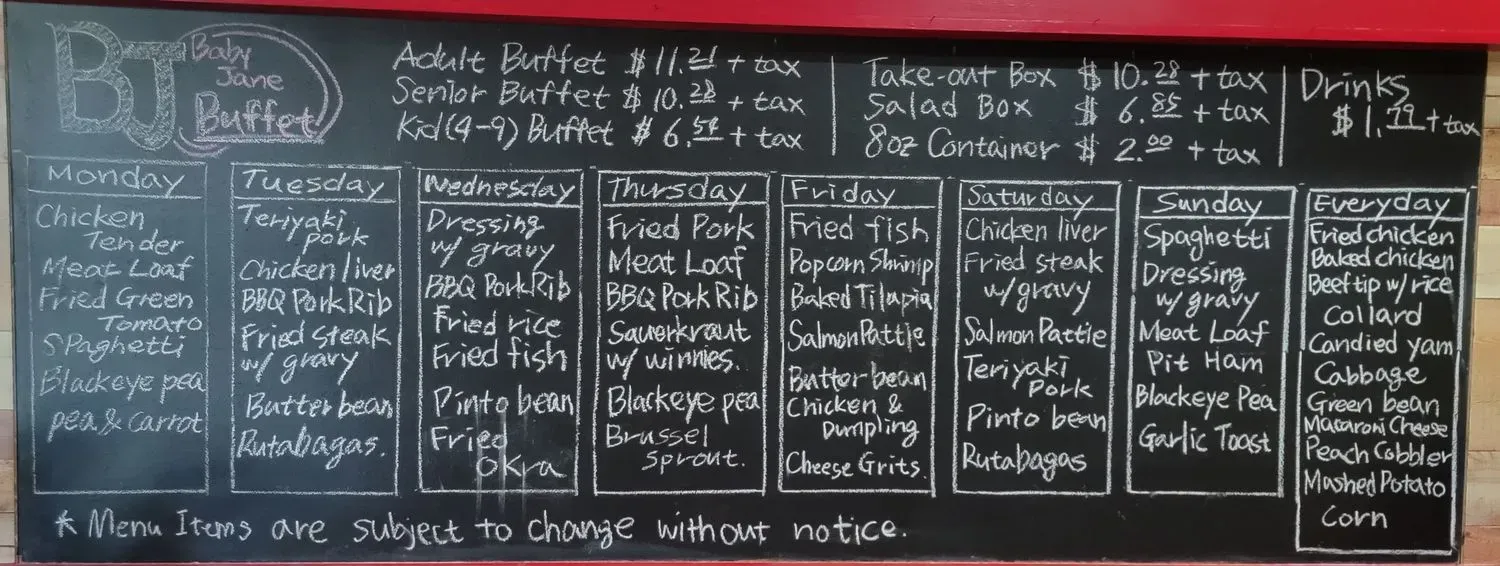 BJ
Baby
Jane
Buffet
Adult Buffet $11.21 + tax
Senior Buffet $10.28 + tax
Kid(4-9) Buffet $6.54 + tax
Take-out Box $10.28 + tax
Salad Box $6.85 + tax
8oz Container $2.00 + tax
Drinks
$1.79 + tax
Monday
Chicken
Tender
Meat Loaf
Fried Green
Tomato
Spaghetti
Blackeye pea
pea & carrot
Tuesday
Teriyaki
pork
Chicken liver
BBQ Pork Rib
Fried steak
w/ gravy
Butter bean
Rutabagas.
Wednesday
Dressing
w/ gravy
BBQ Pork Rib
Fried rice
Fried fish
Pinto bean
Fried
Okra
Thursday
Fried Pork
Meat Loaf
BBQ Pork Rib
Sauerkraut
w/ winnies.
Blackeye pea
Brussel
Sprout.
Friday
Fried fish
Popcorn Shrimp
Baked Tilapia
Salmon Pattie
Butter bean
Chicken &
Dumpling
Cheese Grits.
Saturday
Chicken liver
Fried steak
w/ gravy
Salmon Pattie
Teriyaki
Pork
Pinto bean
Rutabagas
Sunday
Spaghetti
Dressing
w/ gravy
Meat Loaf
Pit Ham
Blackeye Pea
Garlic Toast
Everyday
Fried chicken
Baked chicken
Beef tip w/ rice
Collard
Candied yam
Cabbage
Green bean
Macaroni Cheese
Peach Cobbler
Mashed Potato
Corn
* Menu Items are subject to change without notice.